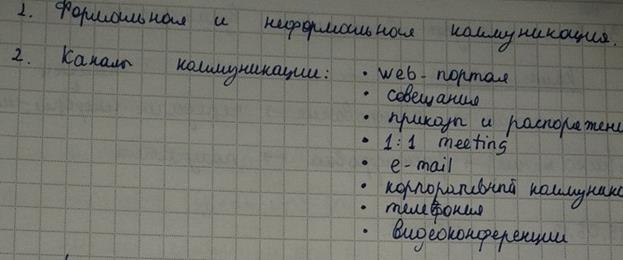 1. Формальная и неформальная коммуникация.
2. Каналы коммуникации: • web-портал
• совещания
• приказы и распоряжени
• 1:1 meeting
• e-mail
• корпоративный коммуник
• телефония
• видеоконференции